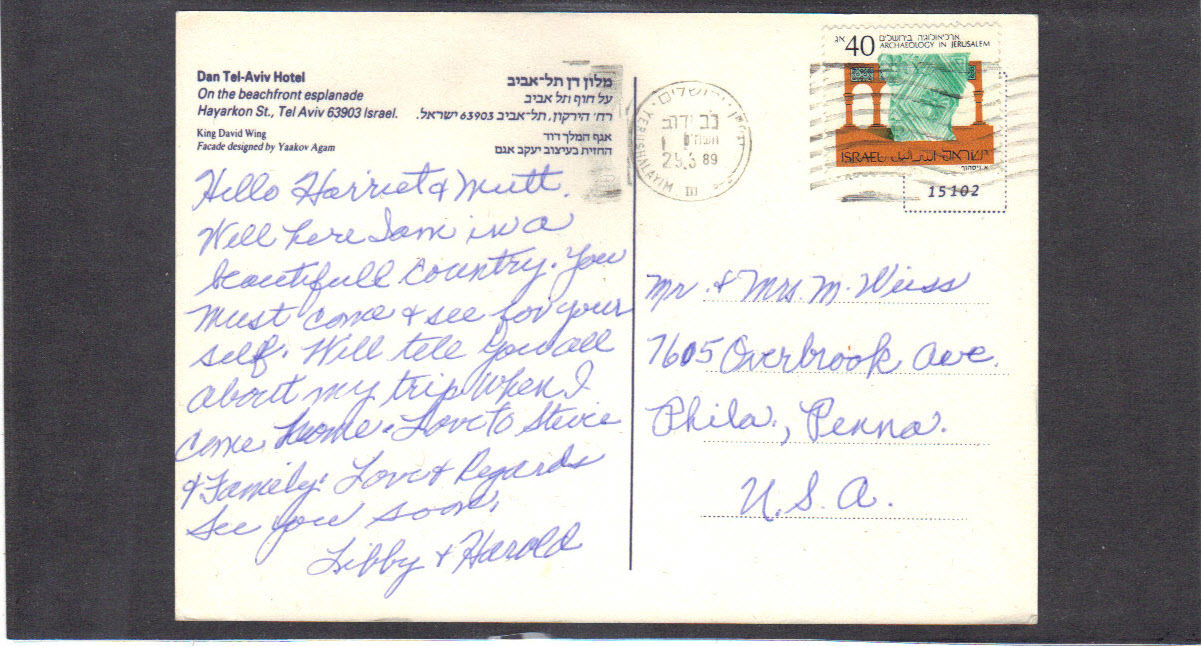 Dan Tel-Aviv Hotel
On the beachfront esplanade
Hayarkon St., Tel Aviv 63903 Israel.
King David Wing
Facade designed by Yaakov Agam
מלון דן תל-אביב
על חוף תל אביב
רח׳ הירקון, תל-אביב 63903 ישראל.
אגף המלך דוד
החזית בעיצוב יעקב אגם
Hello Harriet & Mutt.
Well here I am in a
beautifull country. You
must come & see for your
self. Will tell you all
about my trip when I
come home. Love to Stevie
& Family. Love & Regards
See you soon,
Libby & Harold
ירושלים
YERUSHALAYIM
89
III
אג 40
ארכיאולוגיה בירושלים
ARCHAEOLOGY IN JERUSALEM
ISRAEL ישראל
15102
Mr. & Mrs. M. Weiss
7605 Overbrook Ave.
Phila., Penna.
U.S.A.